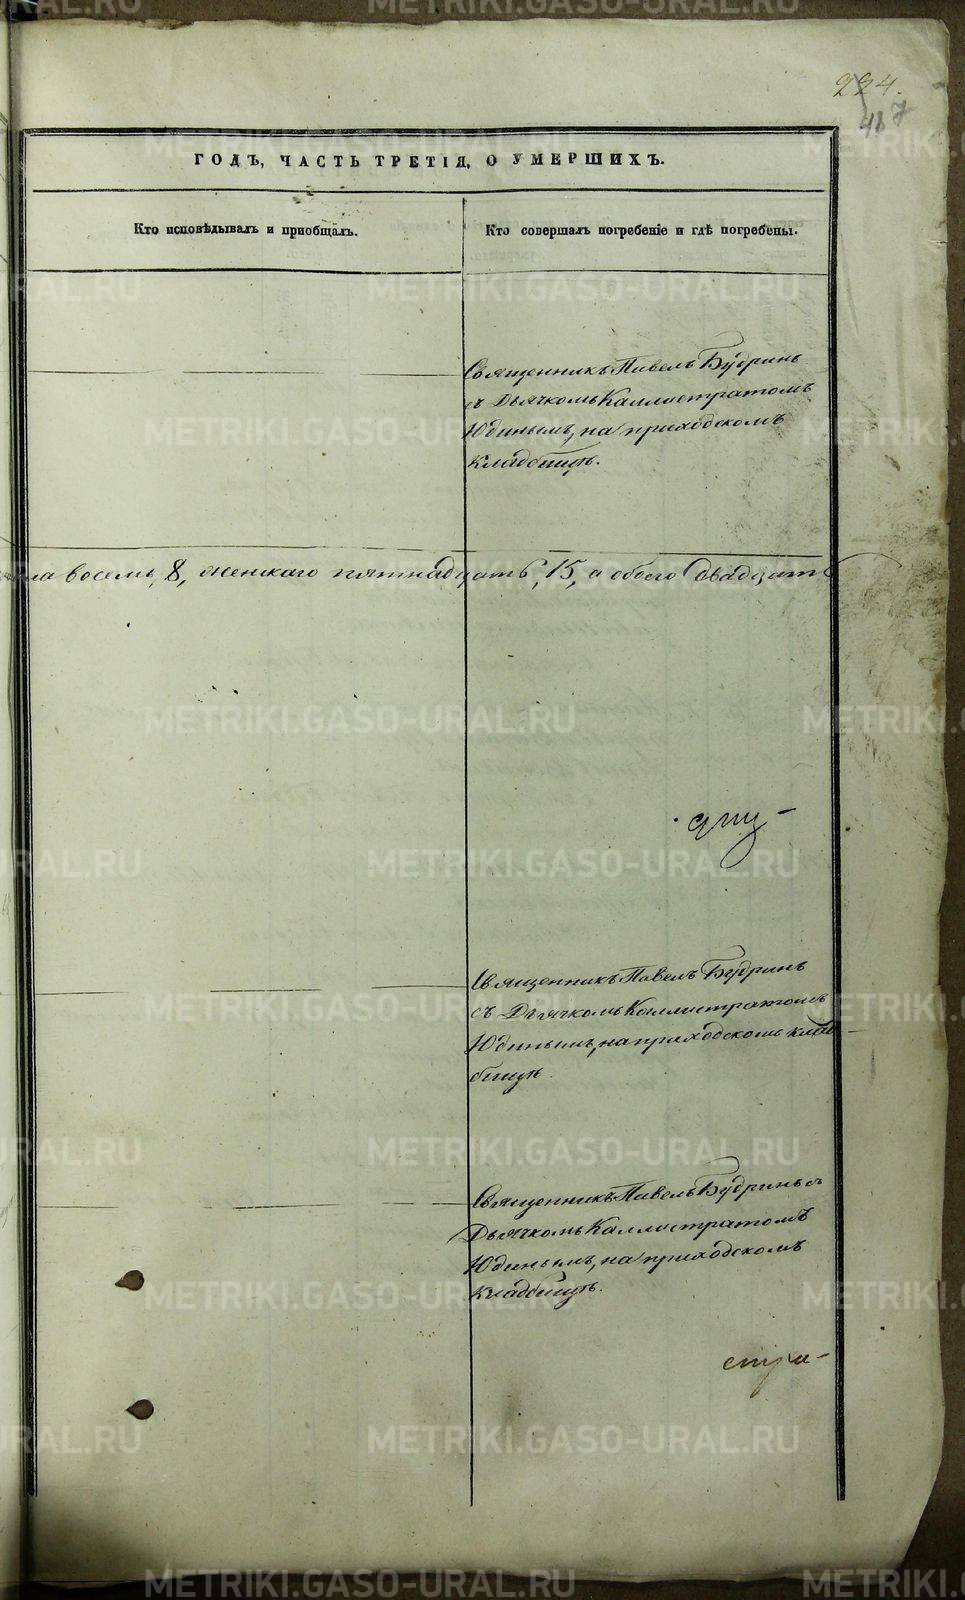 224.
487
ГОДЪ, ЧАСТЬ ТРЕТІЯ, О УМЕРШИХЪ.
Кто исповѣдывалъ и пріобщалъ.
Кто совершалъ погребеніе и гдѣ погребены.
Священникъ Павелъ Будринъ
съ Дьячкомъ Каллистратомъ
Юдинымъ, на приходскомъ
кладбищѣ.
ла восемь, 8, женскаго пятнадцать, 15, а обоего двадцать
Священникъ Павелъ Будринъ
съ Дьячкомъ Каллистратомъ
Юдинымъ, на приходскомъ клад
бищѣ.
Священникъ Павелъ Будринъ съ
Дьячкомъ Каллистратомъ
Юдинымъ, на приходскомъ
кладбищѣ.
METRIKI.GASO-URAL.RU